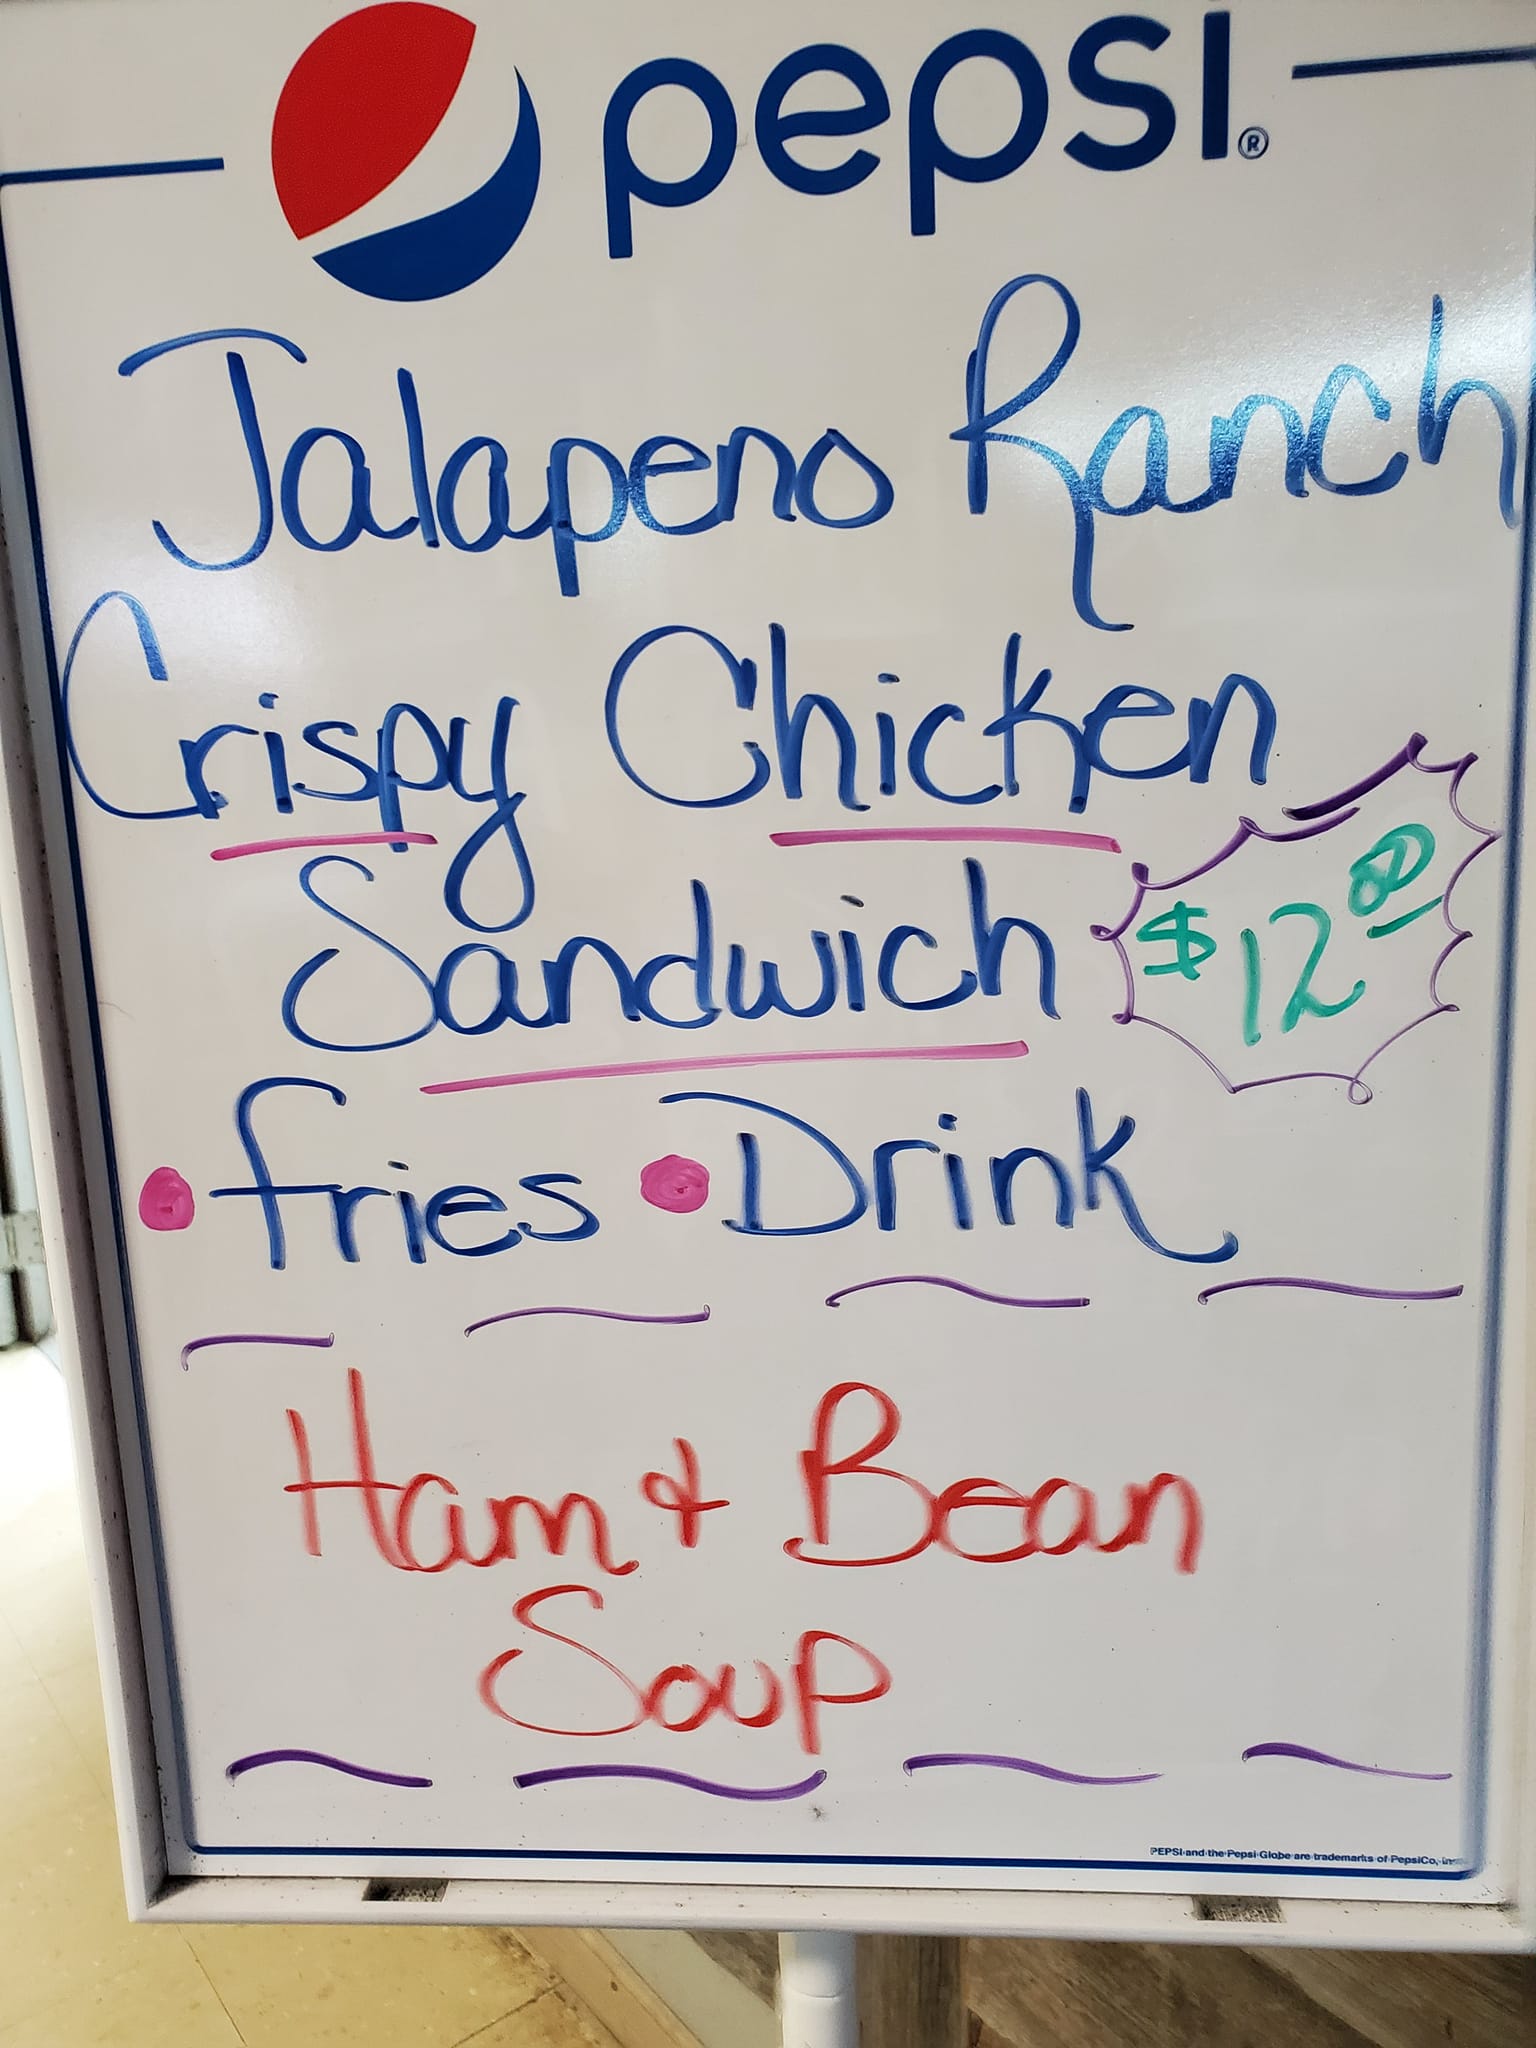 pepsi®
Jalapeno Ranch
Crispy Chicken
Sandwich
$12.00
• fries • Drink
Ham & Bean
Soup
PEPSI and the Pepsi Globe are trademarks of PepsiCo, Inc.